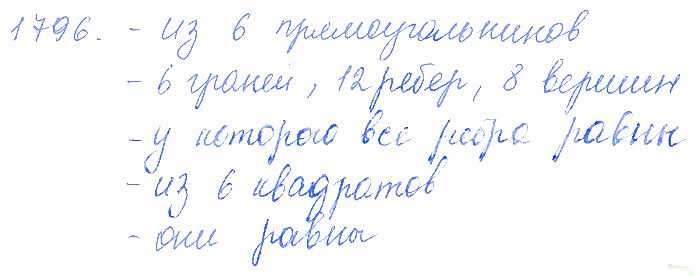 1796. - из 6 прямоугольников
- 6 граней, 12 ребер, 8 вершин
- у которого все ребра равны
- из 6 квадратов
- они равны